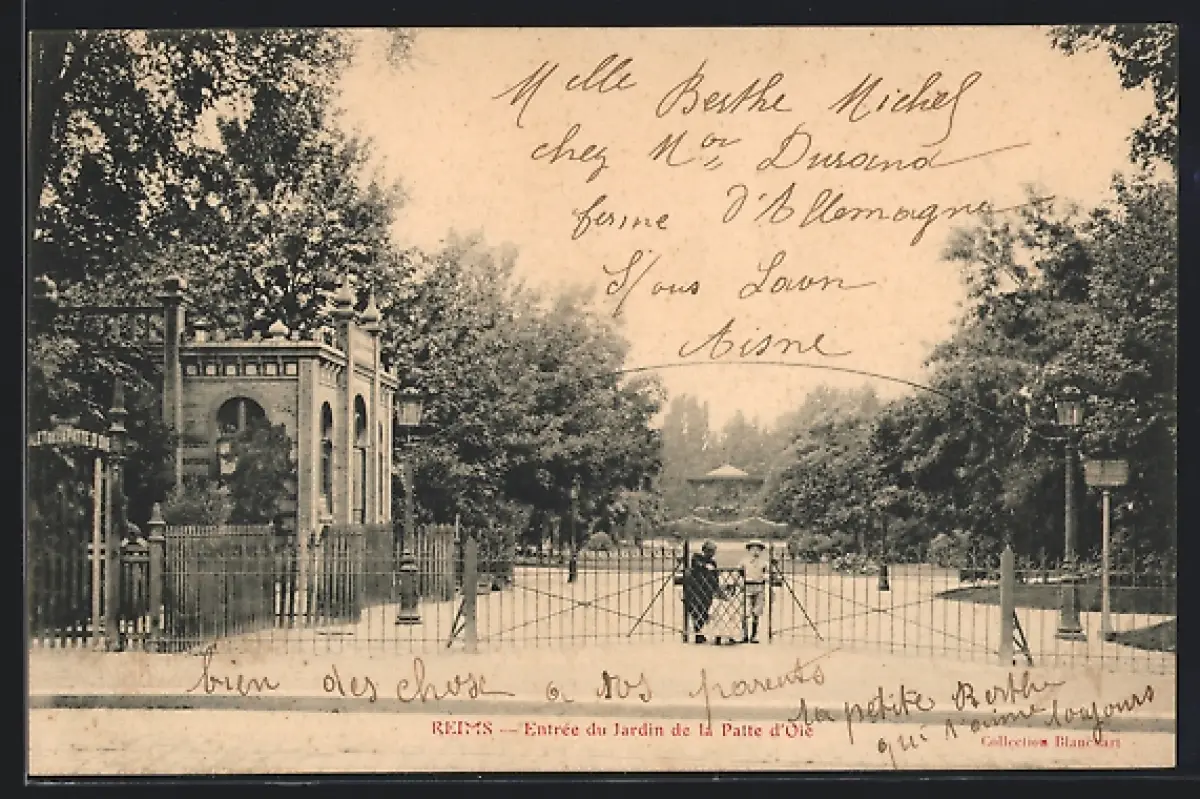 Melle Berthe Michel
chez Mor Durand
ferme d'Allemagne
S/ous Laon
Aisne
PATTE D'OIE
bien des chose a vos parents
ta petite Berthe
qui t'aime toujours
REIMS — Entrée du Jardin de la Patte d'Oie
Collection Blanchart